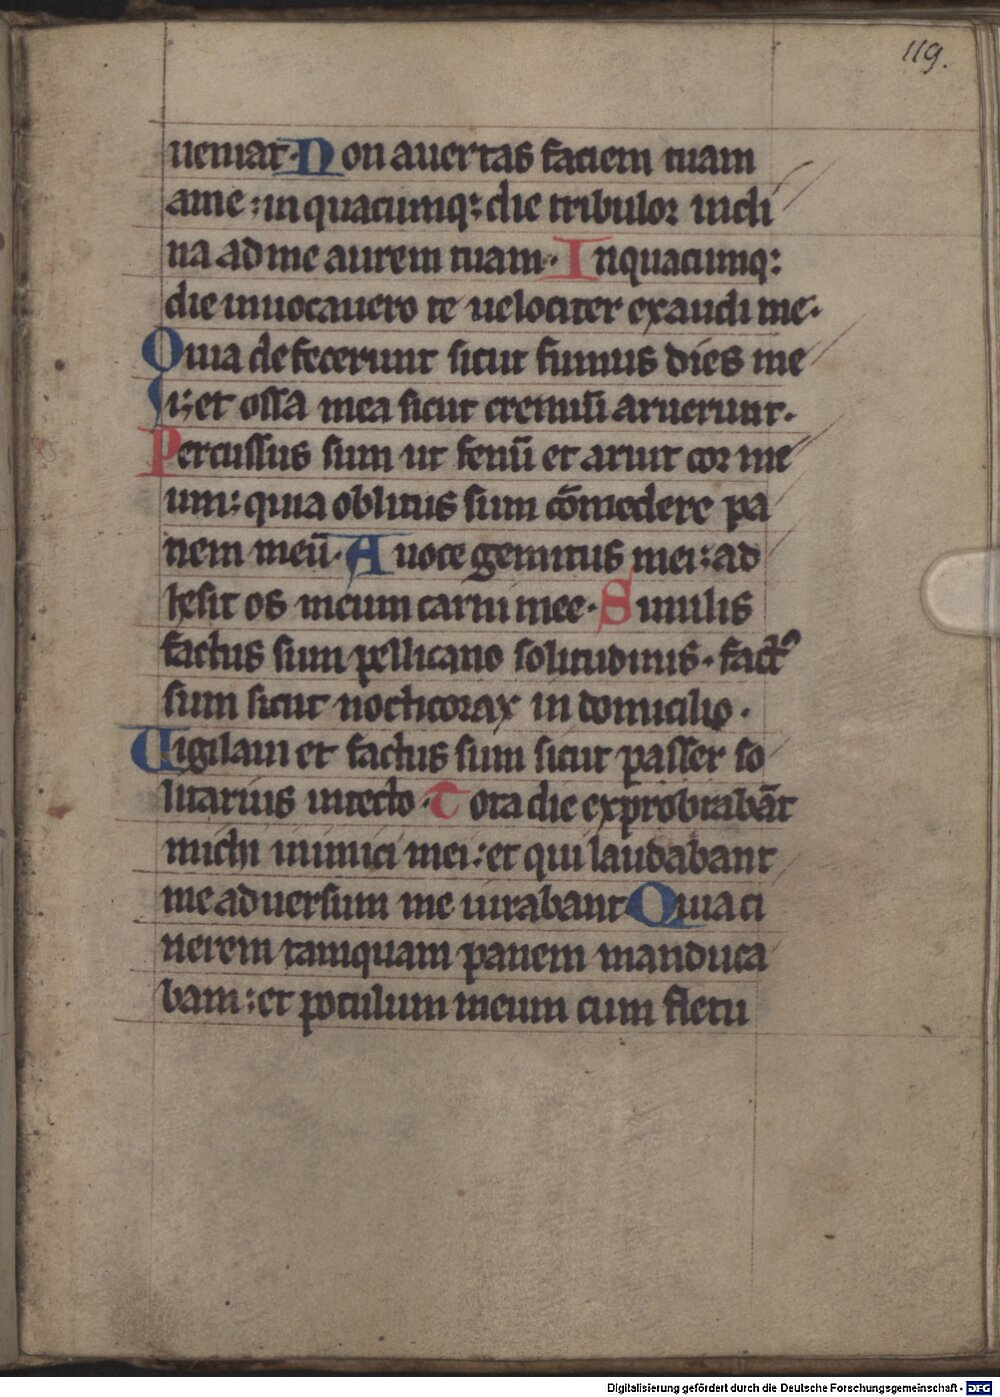 119.
ueniat. Non auertas faciem tuam
a me : in quacumq: die tribulor incli
na ad me aurem tuam. In quacumq:
die inuocauero te uelociter exaudi me.
Quia defecerunt sicut fumus dies me
i: et ossa mea sicut cremiū aruerunt.
Percussus sum ut fenū et aruit cor me
um: quia oblitus sum cōmedere pa
nem meū. A uoce gemitus mei: ad
hesit os meum carni mee. Similis
factus sum pellicano solitudinis. factꝰ
sum sicut nocticorax in domicilio.
Uigilaui et factus sum sicut passer so
litarius in tecto. Tota die exprobrabāt
michi inimici mei: et qui laudabant
me aduersum me iurabant Quia ci
nerem tamquam panem manduca
bam: et poculum meum cum fletu
Digitalisierung gefördert durch die Deutsche Forschungsgemeinschaft - DFG